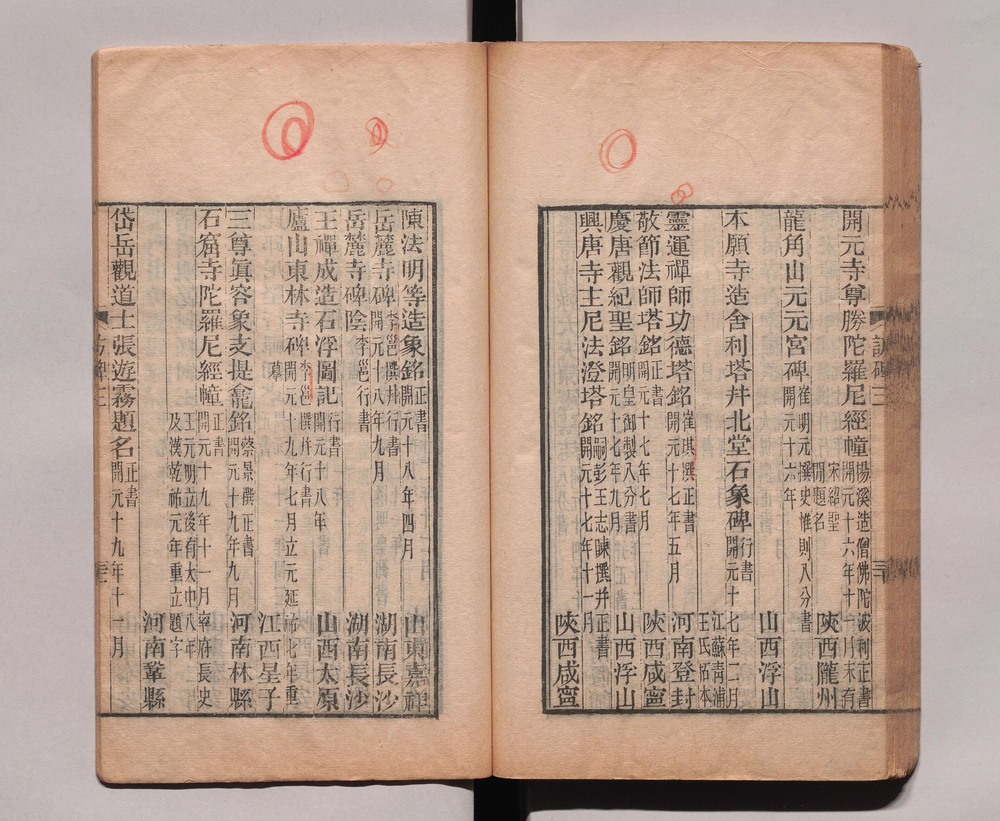 開元寺尊勝陀羅尼經幢 楊溪造僧佛陀波利正書 開元十六年十一月末有
宋紹聖 閒題名 陝西隴州
龍角山元元宮碑 崔明元撰史惟則八分書 開元十六年 山西浮山
本願寺造舍利塔幷北堂石象碑 行書 開元十七年二月 江蘇青浦 王氏拓本
靈運禪師功德塔銘 崔琪撰正書 開元十七年五月 河南登封
敬節法師塔銘 正書 開元十七年七月 陝西咸寧
慶唐觀紀聖銘 明皇御製八分書 開元十七年九月 山西浮山
興唐寺主尼法澄塔銘 嗣彭王志暕撰幷正書 開元十七年十一月 陝西咸寧
訪碑三
陳法明等造象銘 正書 開元十八年四月 山東嘉祥
岳麓寺碑 李邕撰幷行書 開元十八年九月 湖南長沙
岳麓寺碑陰 李邕行書 湖南長沙
王禪成造石浮圖記 行書 開元十八年 山西太原
廬山東林寺碑 李邕撰幷行書 開元十九年七月立元延祐七年重
摹 江西星子
三尊眞容象支提龕銘 蔡景撰正書 開元十九年九月 河南林縣
石窟寺陀羅尼經幢 正書 開元十九年十一月
王元明立後有大中八年 宰府長史 及漢乾祐元年重立題字 河南鞏縣
岱岳觀道士張遊霧題名 正書 開元十九年十一月
訪碑三